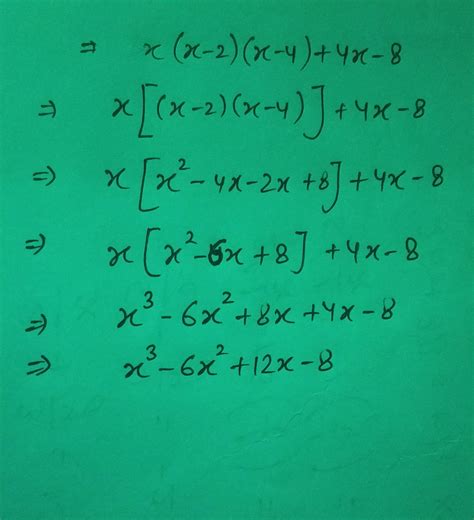 ⇒ x(x-2)(x-4)+4x-8
⇒ x[(x-2)(x-4)]+4x-8
⇒ x[x²-4x-2x+8]+4x-8
⇒ x[x²-6x+8]+4x-8
⇒ x³-6x²+8x+4x-8
⇒ x³-6x²+12x-8